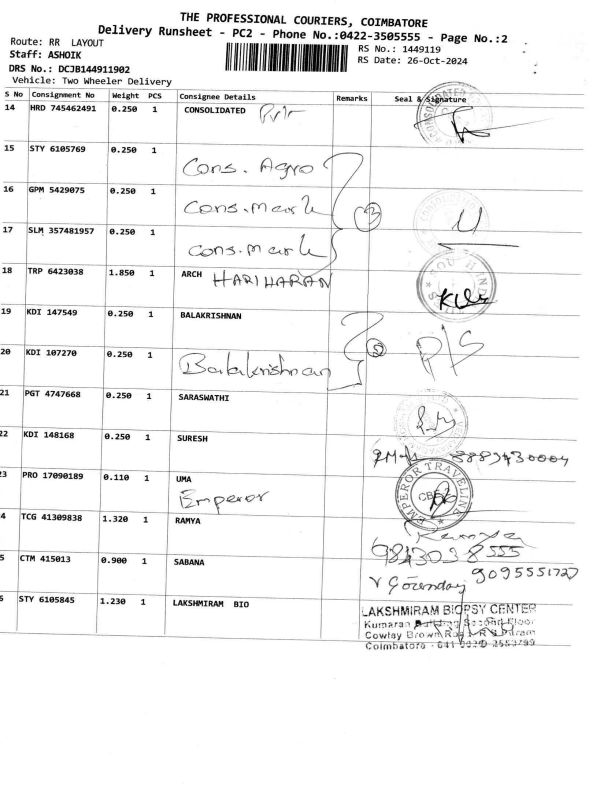 THE PROFESSIONAL COURIERS, COIMBATORE
Delivery Runsheet - PC2 - Phone No.:0422-3505555 - Page No.:2
Route: RR LAYOUT
RS No.: 1449119
Staff: ASHOIK
RS Date: 26-Oct-2024
DRS No.: DCJB144911902
Vehicle: Two Wheeler Delivery
S No Consignment No Weight PCS Consignee Details Remarks Seal & Signature
14 HRD 745462491 0.250 1 CONSOLIDATED
15 STY 6105769 0.250 1
Cons. Agro
16 GPM 5429075 0.250 1
Cons.mark
3
17 SLM 357481957 0.250 1
Cons.mark
18 TRP 6423038 1.850 1 ARCH
HARIHARAN
SOUTH INDI
19 KDI 147549 0.250 1 BALAKRISHNAN
20 KDI 107270 0.250 1
Balakrishnan
P/S
21 PGT 4747668 0.250 1 SARASWATHI
22 KDI 148168 0.250 1 SURESH
23 PRO 17090189 0.110 1 UMA
Emperor
EMPEROR TRAVELINE
CBE
4 TCG 41309838 1.320 1 RAMYA
Ramya
9843038555
5 CTM 415013 0.900 1 SABANA
9095551727
6 STY 6105845 1.230 1 LAKSHMIRAM BIO
LAKSHMIRAM BIOPSY CENTER
Kumaran Building Second Floor
Cowley Brown Road R.S. Puram
Coimbatore - 641 002